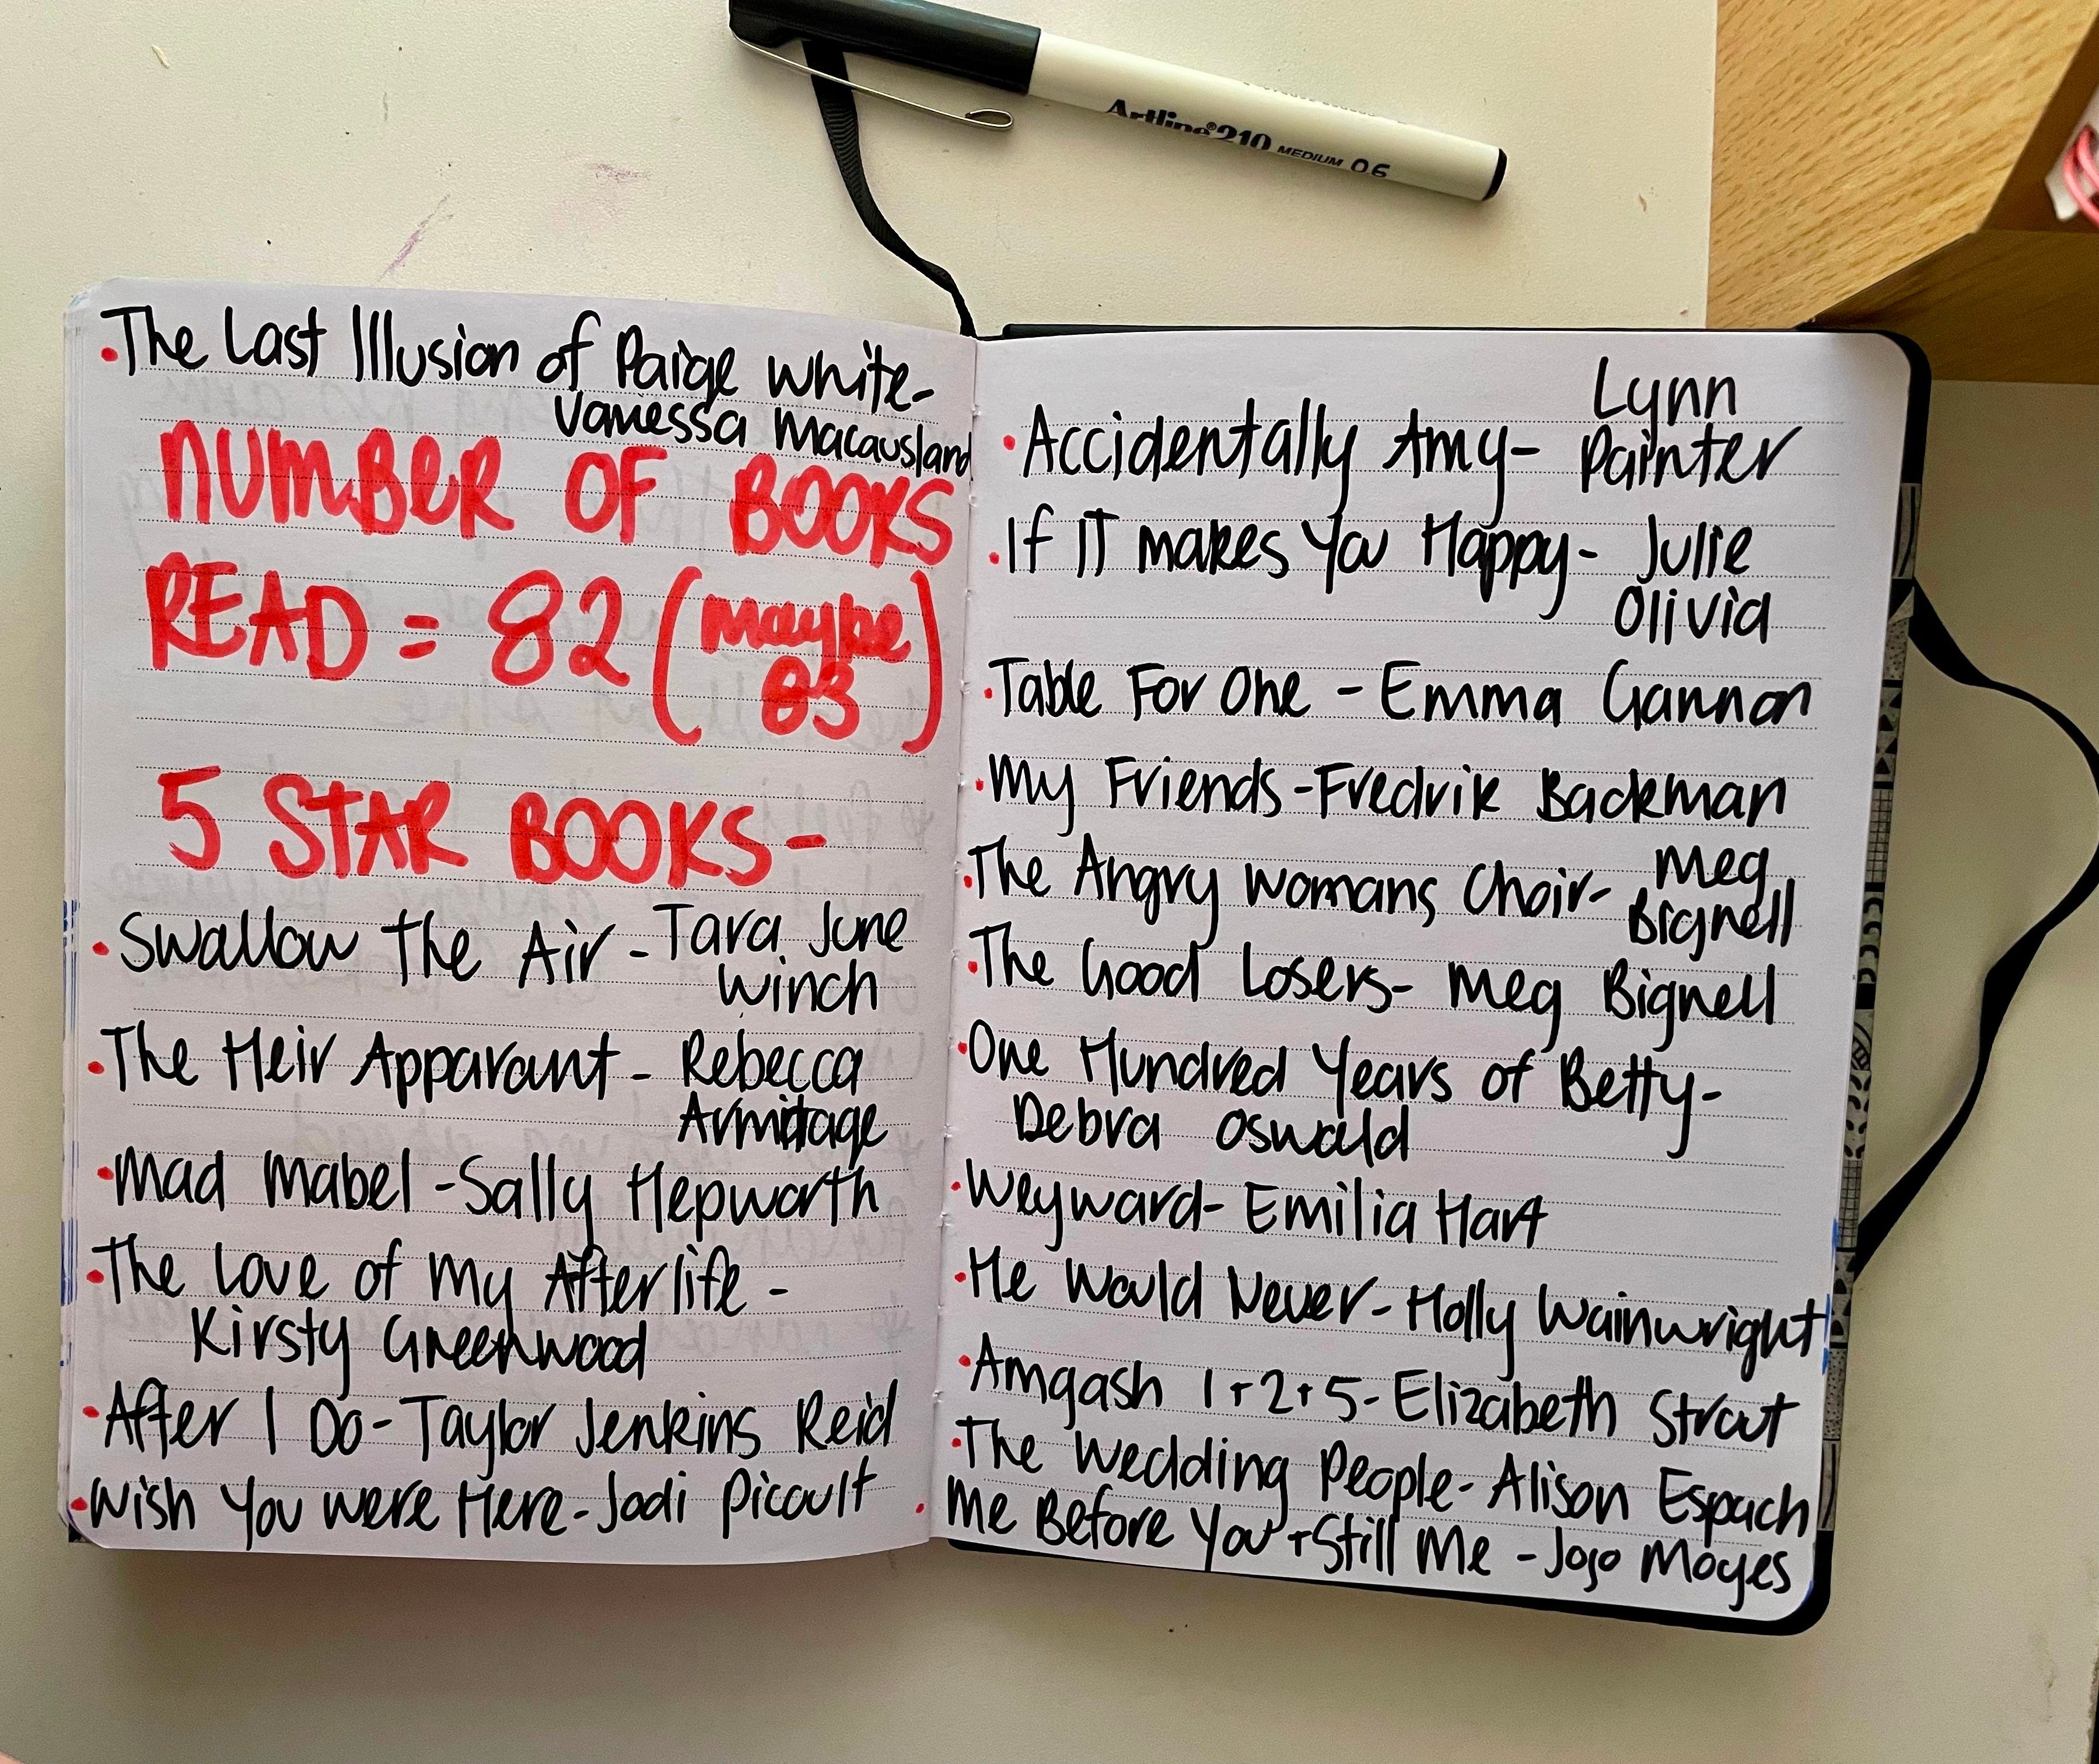 Artline®210 MEDIUM 0.6
• The Last Illusion of Paige White-
Vanessa Macausland
NUMBER OF BOOKS
READ = 82 (Maybe
83)
5 STAR BOOKS-
• Swallow The Air - Tara June
Winch
• The Heir Apparant - Rebecca
Armitage
• Mad Mabel - Sally Hepworth
• The Love of My Afterlife -
Kirsty Greenwood
• After I Do - Taylor Jenkins Reid
• Wish You Were Here - Jodi Picoult
• Accidentally Amy - Lynn
Painter
• If IT Makes You Happy - Julie
Olivia
• Table For One - Emma Gannon
• My Friends - Fredrik Backman
• The Angry Womans Choir - Meg
Bignell
• The Good Losers - Meg Bignell
• One Hundred Years of Betty -
Debra Oswald
• Weyward - Emilia Hart
• He Would Never - Holly Wainwright
• Amgash 1+2+5 - Elizabeth Strout
• The Wedding People - Alison Espach
• Me Before You + Still Me - Jojo Moyes